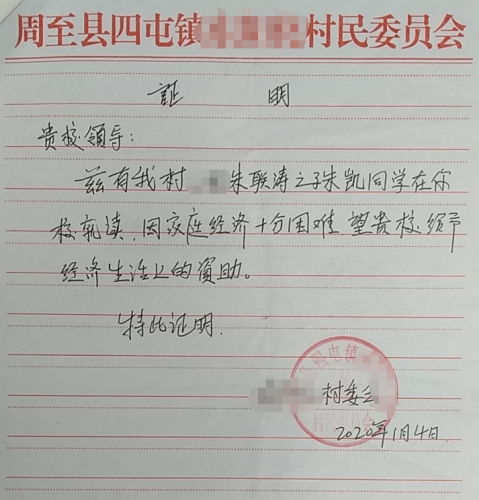 周至县四屯镇村民委员会
证 明
贵校领导：
兹有我村 朱联涛之子朱凯同学在你
校就读，因家庭经济十分困难，望贵校给予
经济生活上的资助。
特此证明.
四屯镇
村委会
2020年1月4日.